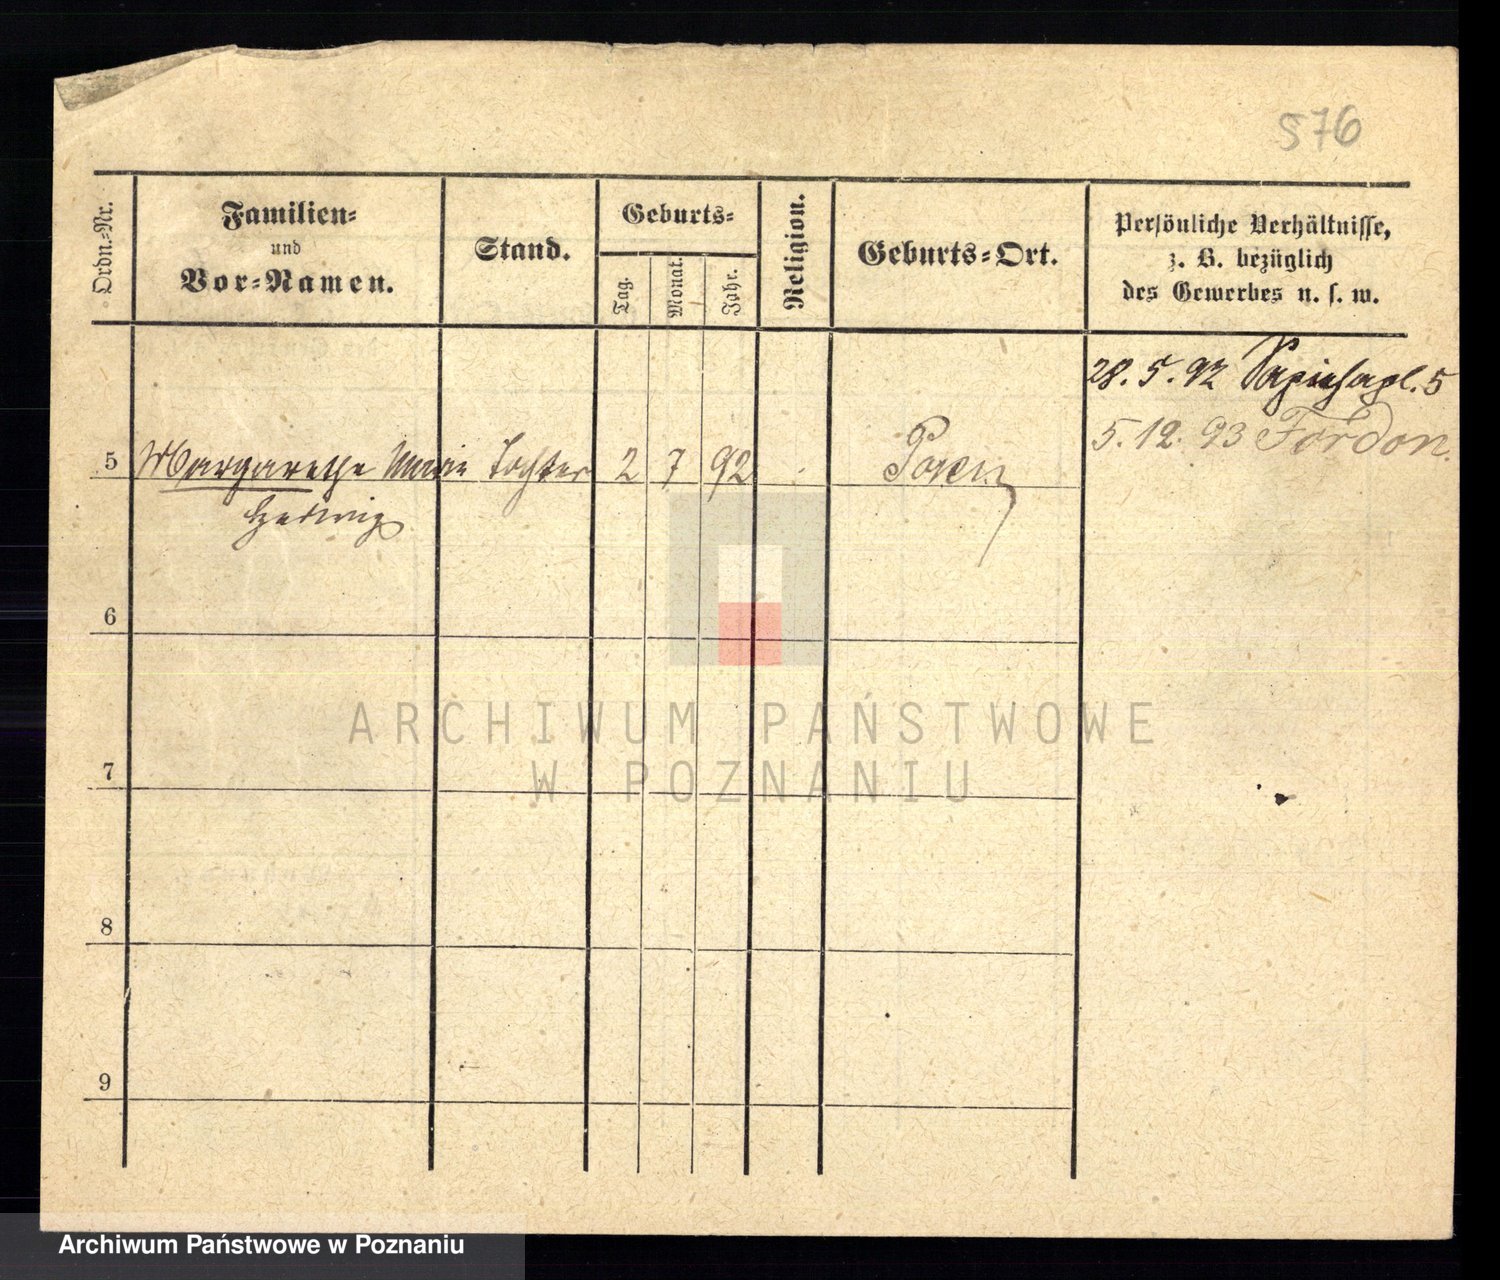 576
Ordn.-Nr.
Familien-
und
Vor-Namen.
Stand.
Geburts-
Tag.
Monat.
Jahr.
Religion.
Geburts-Ort.
Persönliche Verhältnisse,
z. B. bezüglich
des Gewerbes u. s. w.
28. 5. 92 Sapiehapl. 5
5. 12. 93 Fordon.
5 Margarethe Marie Tochter 2 7 92 Posen
Hedwig
6
7
8
9
ARCHIWUM PAŃSTWOWE
W POZNANIU
Archiwum Państwowe w Poznaniu